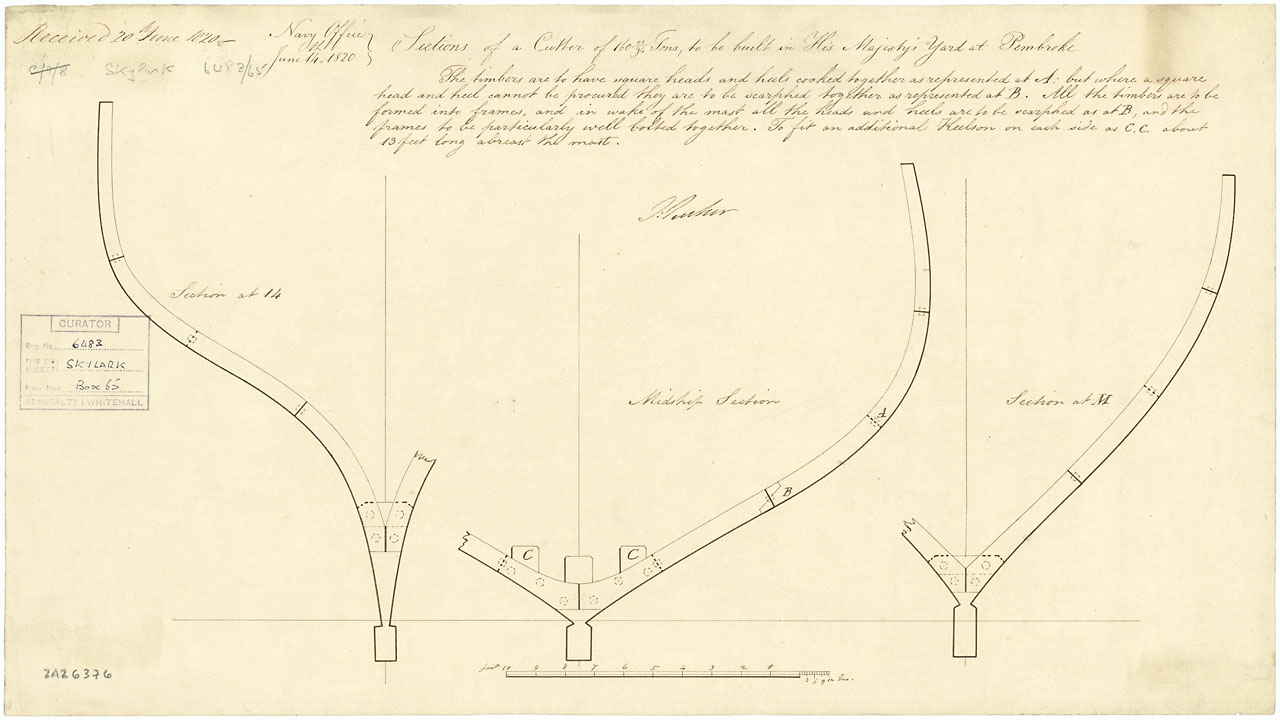 Received 20th June 1820
Navy Office
June 14th 1820
C/1/8 Skylark 6483/65
Sections of a Cutter of 160 Tons, to be built in His Majesty's Yard at Pembroke.
The timbers are to have square heads and heels cooked together as represented at A: but where a square
head and heel cannot be procured they are to be scarphed together as represented at B. All the timbers are to be
formed into frames, and in wake of the mast all the heads and heels are to be scarphed as at B, and the
frames to be particularly well bolted together. To fit an additional Keelson on each side as C.C. about
13 feet long abreast the mast.
Section at 14
CURATOR
Reg. No. 6483
SHIP OR SUBJECT: SKYLARK
Box 65
ADMIRALTY: WHITEHALL
Midship Section
A
B
C
C
Section at M
feet 10 9 8 7 6 5 4 3 2 1
3 6 9 in hes.
2A26376